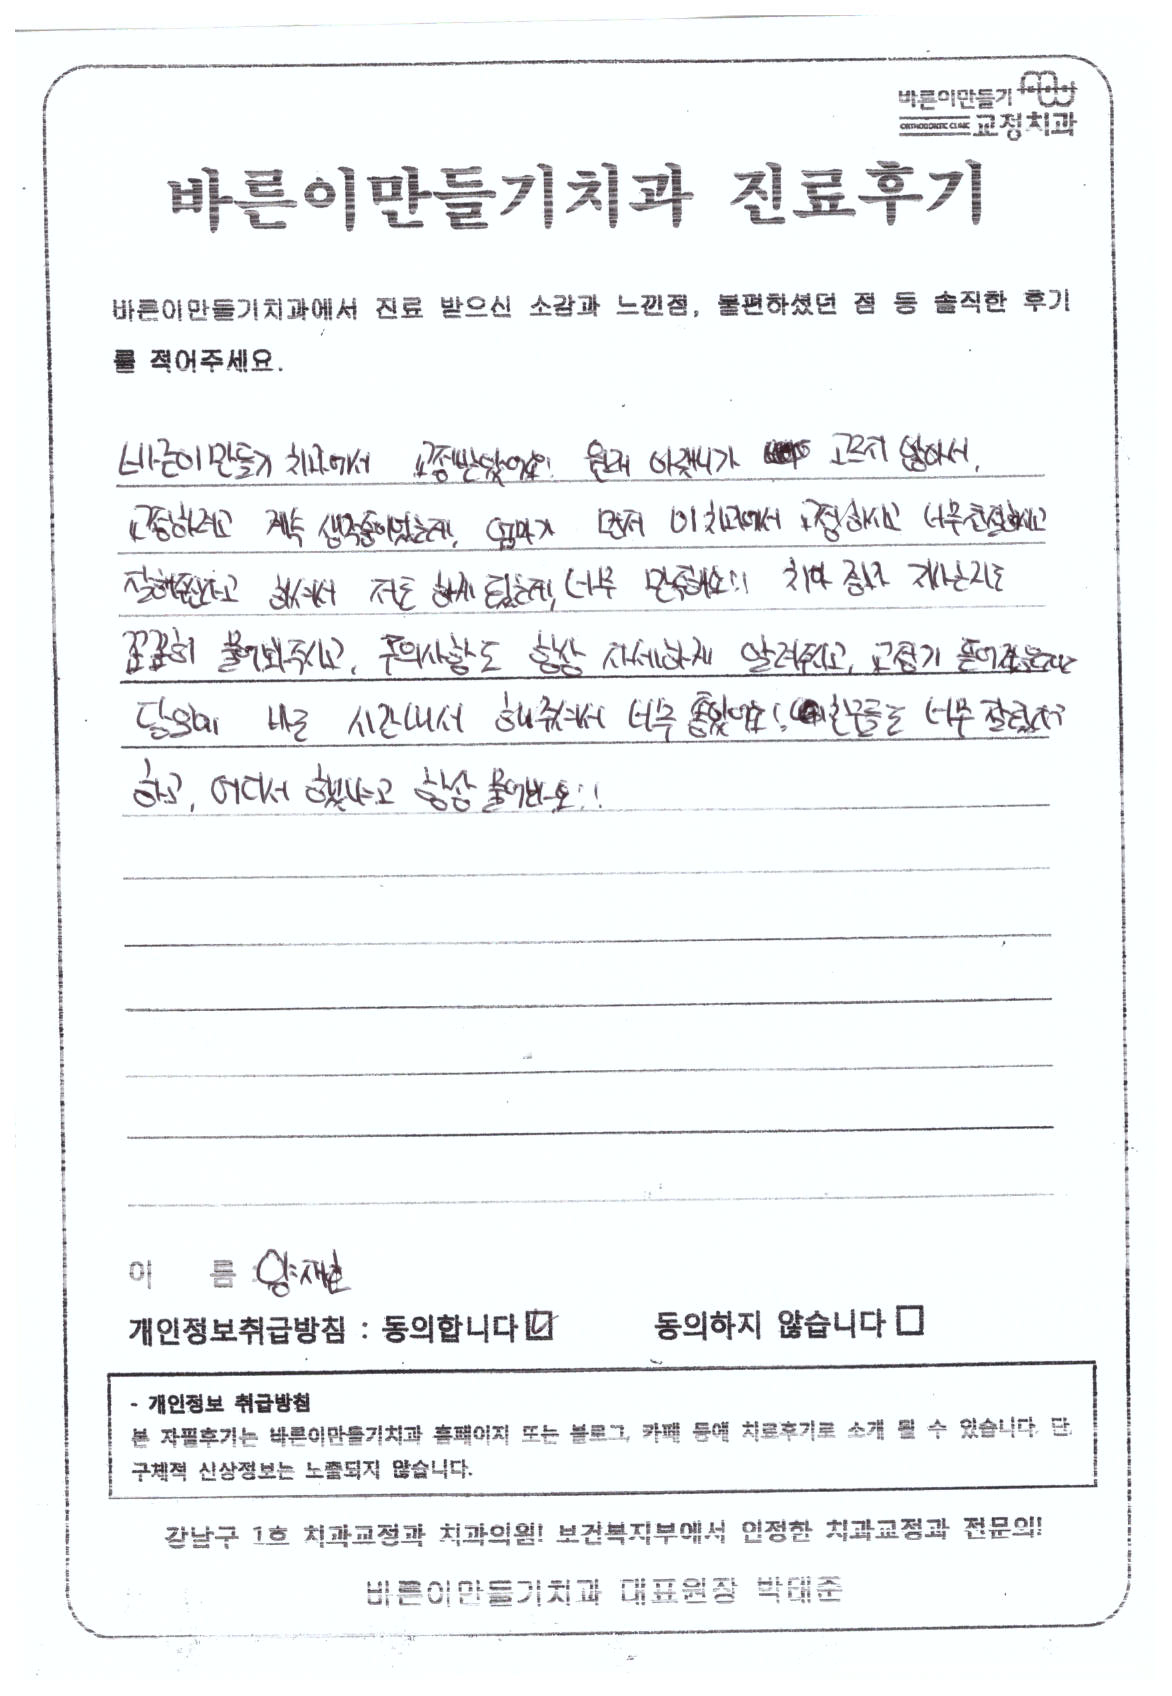 바른이만들기
ORTHODONTIC CLINIC 교정치과
바른이만들기치과 진료후기
바른이만들기치과에서 진료 받으신 소감과 느낀점, 불편하셨던 점 등 솔직한 후기
를 적어주세요.
바른이만들기 치과에서 교정받았어요! 원래 아랫니가 고르지 않아서,
교정하려고 계속 생각중이었는데, 엄마가 먼저 이 치과에서 교정하시고 너무친절하시고
잘해준다고 하셔서 저도 하게 됐는데, 너무 만족해요!! 치아 중요 관리는지도
꼼꼼히 물어봐주시고, 주의사항도 항상 자세하게 알려주시고, 교정기 떨어졌는데
당일에 바로 시간내서 해주셔서 너무 좋았어요! 친구들도 너무 잘됐다
하고, 어디서 했냐고 항상 물어봐요!!
이 름 : 양재
개인정보취급방침 : 동의합니다 동의하지 않습니다
- 개인정보 취급방침
본 자필후기는 바른이만들기치과 홈페이지 또는 블로그, 카페 등에 치료후기로 소개 될 수 있습니다. 단,
구체적 신상정보는 노출되지 않습니다.
강남구 1호 치과교정과 치과의원! 보건복지부에서 인정한 치과교정과 전문의!
바른이만들기치과 대표원장 박태준